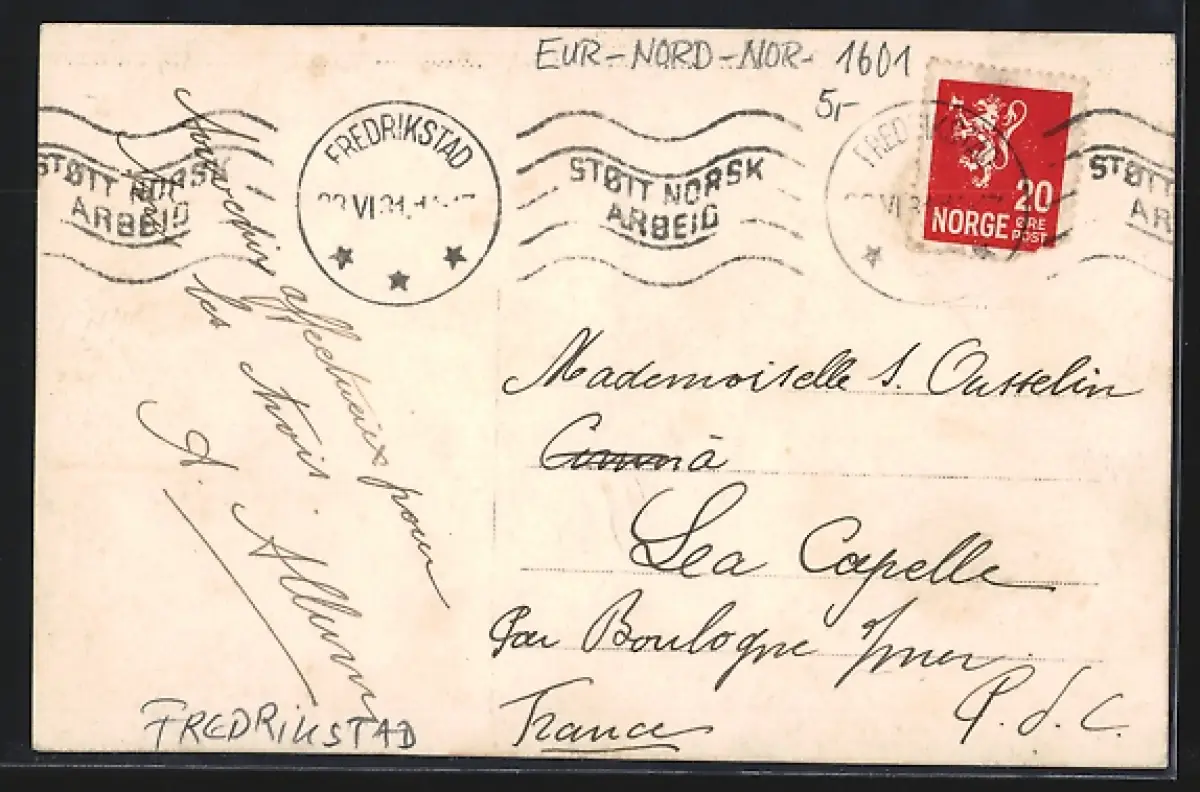 EUR-NORD-NOR- 1601
5,-
STØTT NORSK
ARBEID
FREDRIKSTAD
VI 31
STØTT NORSK
ARBEID
FREDRIKSTAD
VI 3
NORGE 20
ØRE
POST
STØTT
AR
affectueux pour
les trois
A.
Mademoiselle S. Ousselin
à
La Capelle
Par Boulogne s/mer
P. d. C.
France
FREDRIKSTAD